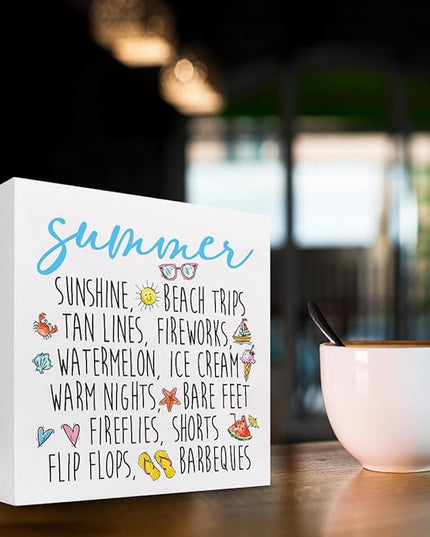 summer
SUNSHINE, BEACH TRIPS
TAN LINES, FIREWORKS
WATERMELON, ICE CREAM
WARM NIGHTS, BARE FEET
FIREFLIES, SHORTS
FLIP FLOPS, BARBEQUES